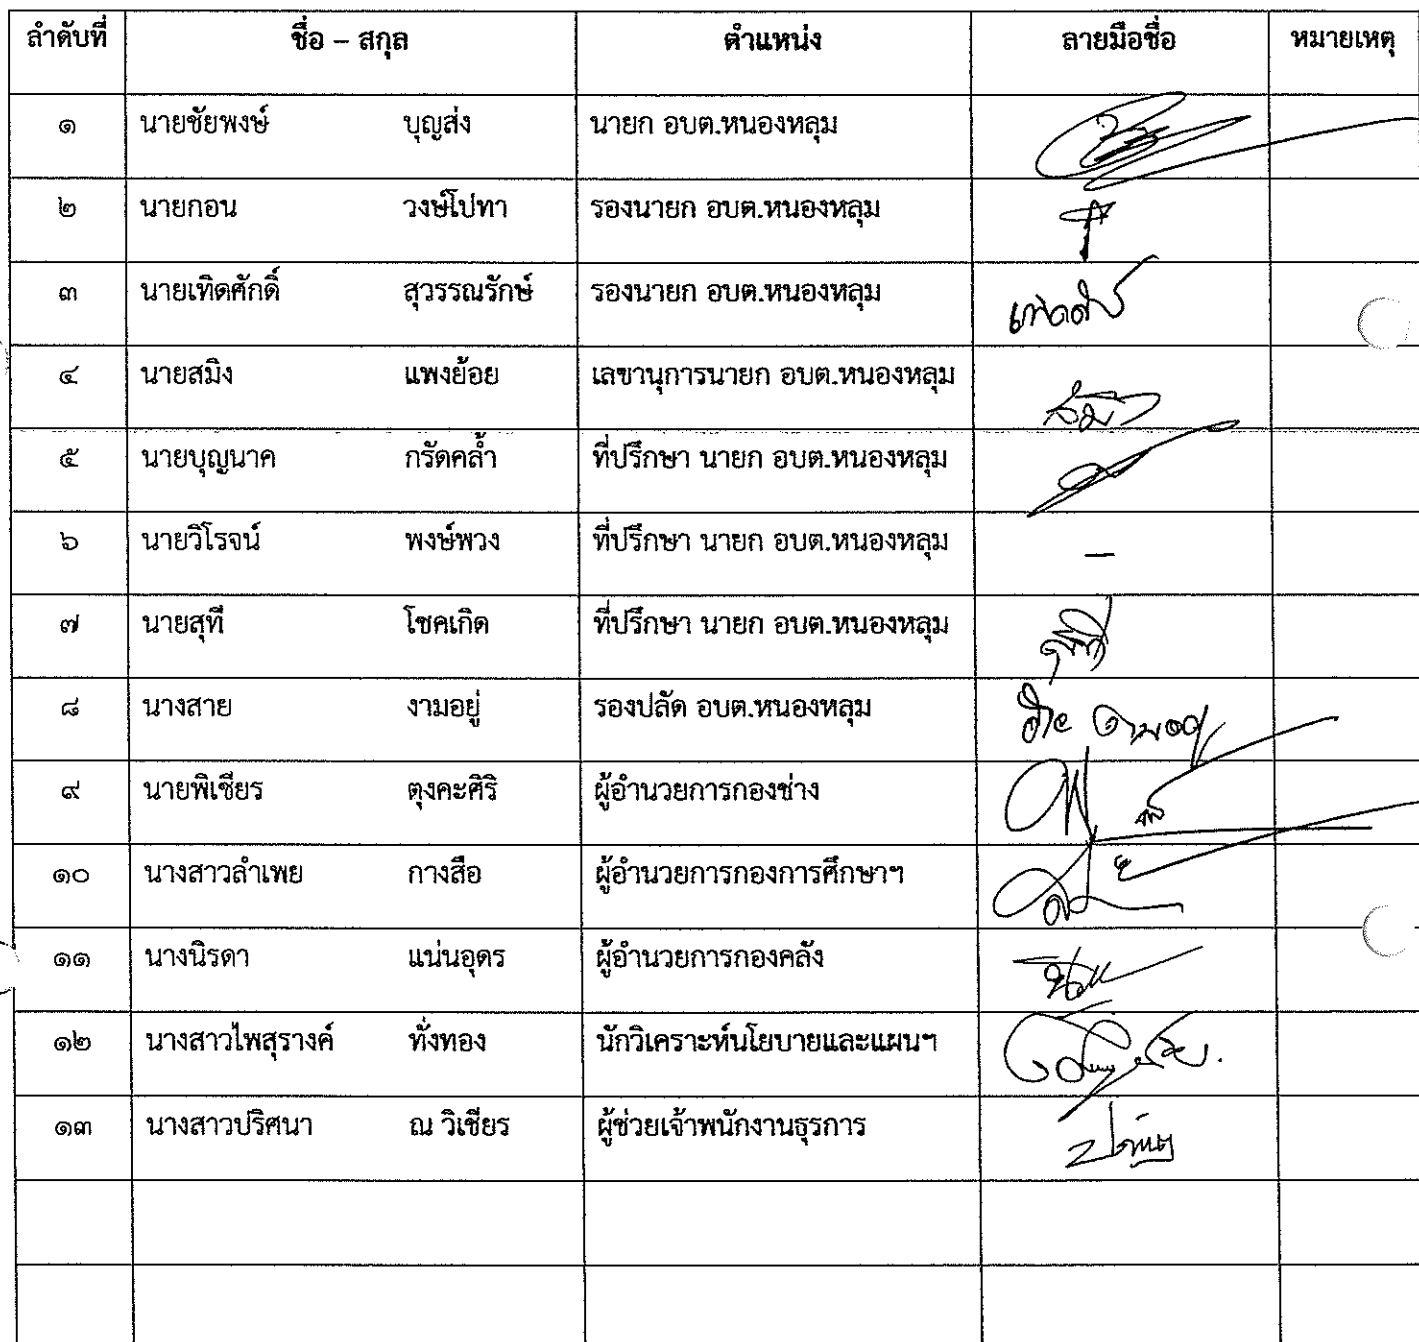 ลำดับที่ ชื่อ – สกุล ตำแหน่ง ลายมือชื่อ หมายเหตุ
๑ นายชัยพงษ์ บุญส่ง นายก อบต.หนองหลุม
๒ นายกอน วงษ์โปทา รองนายก อบต.หนองหลุม
๓ นายเทิดศักดิ์ สุวรรณรักษ์ รองนายก อบต.หนองหลุม
๔ นายสมิง แพงย้อย เลขานุการนายก อบต.หนองหลุม
๕ นายบุญนาค กรัดคล้ำ ที่ปรึกษา นายก อบต.หนองหลุม
๖ นายวิโรจน์ พงษ์พวง ที่ปรึกษา นายก อบต.หนองหลุม –
๗ นายสุที โชคเกิด ที่ปรึกษา นายก อบต.หนองหลุม
๘ นางสาย งามอยู่ รองปลัด อบต.หนองหลุม
๙ นายพิเชียร ตุงคะศิริ ผู้อำนวยการกองช่าง
๑๐ นางสาวลำเพย กางสือ ผู้อำนวยการกองการศึกษาฯ
๑๑ นางนิรดา แน่นอุดร ผู้อำนวยการกองคลัง
๑๒ นางสาวไพสุรางค์ ทั่งทอง นักวิเคราะห์นโยบายและแผนฯ
๑๓ นางสาวปริศนา ณ วิเชียร ผู้ช่วยเจ้าพนักงานธุรการ